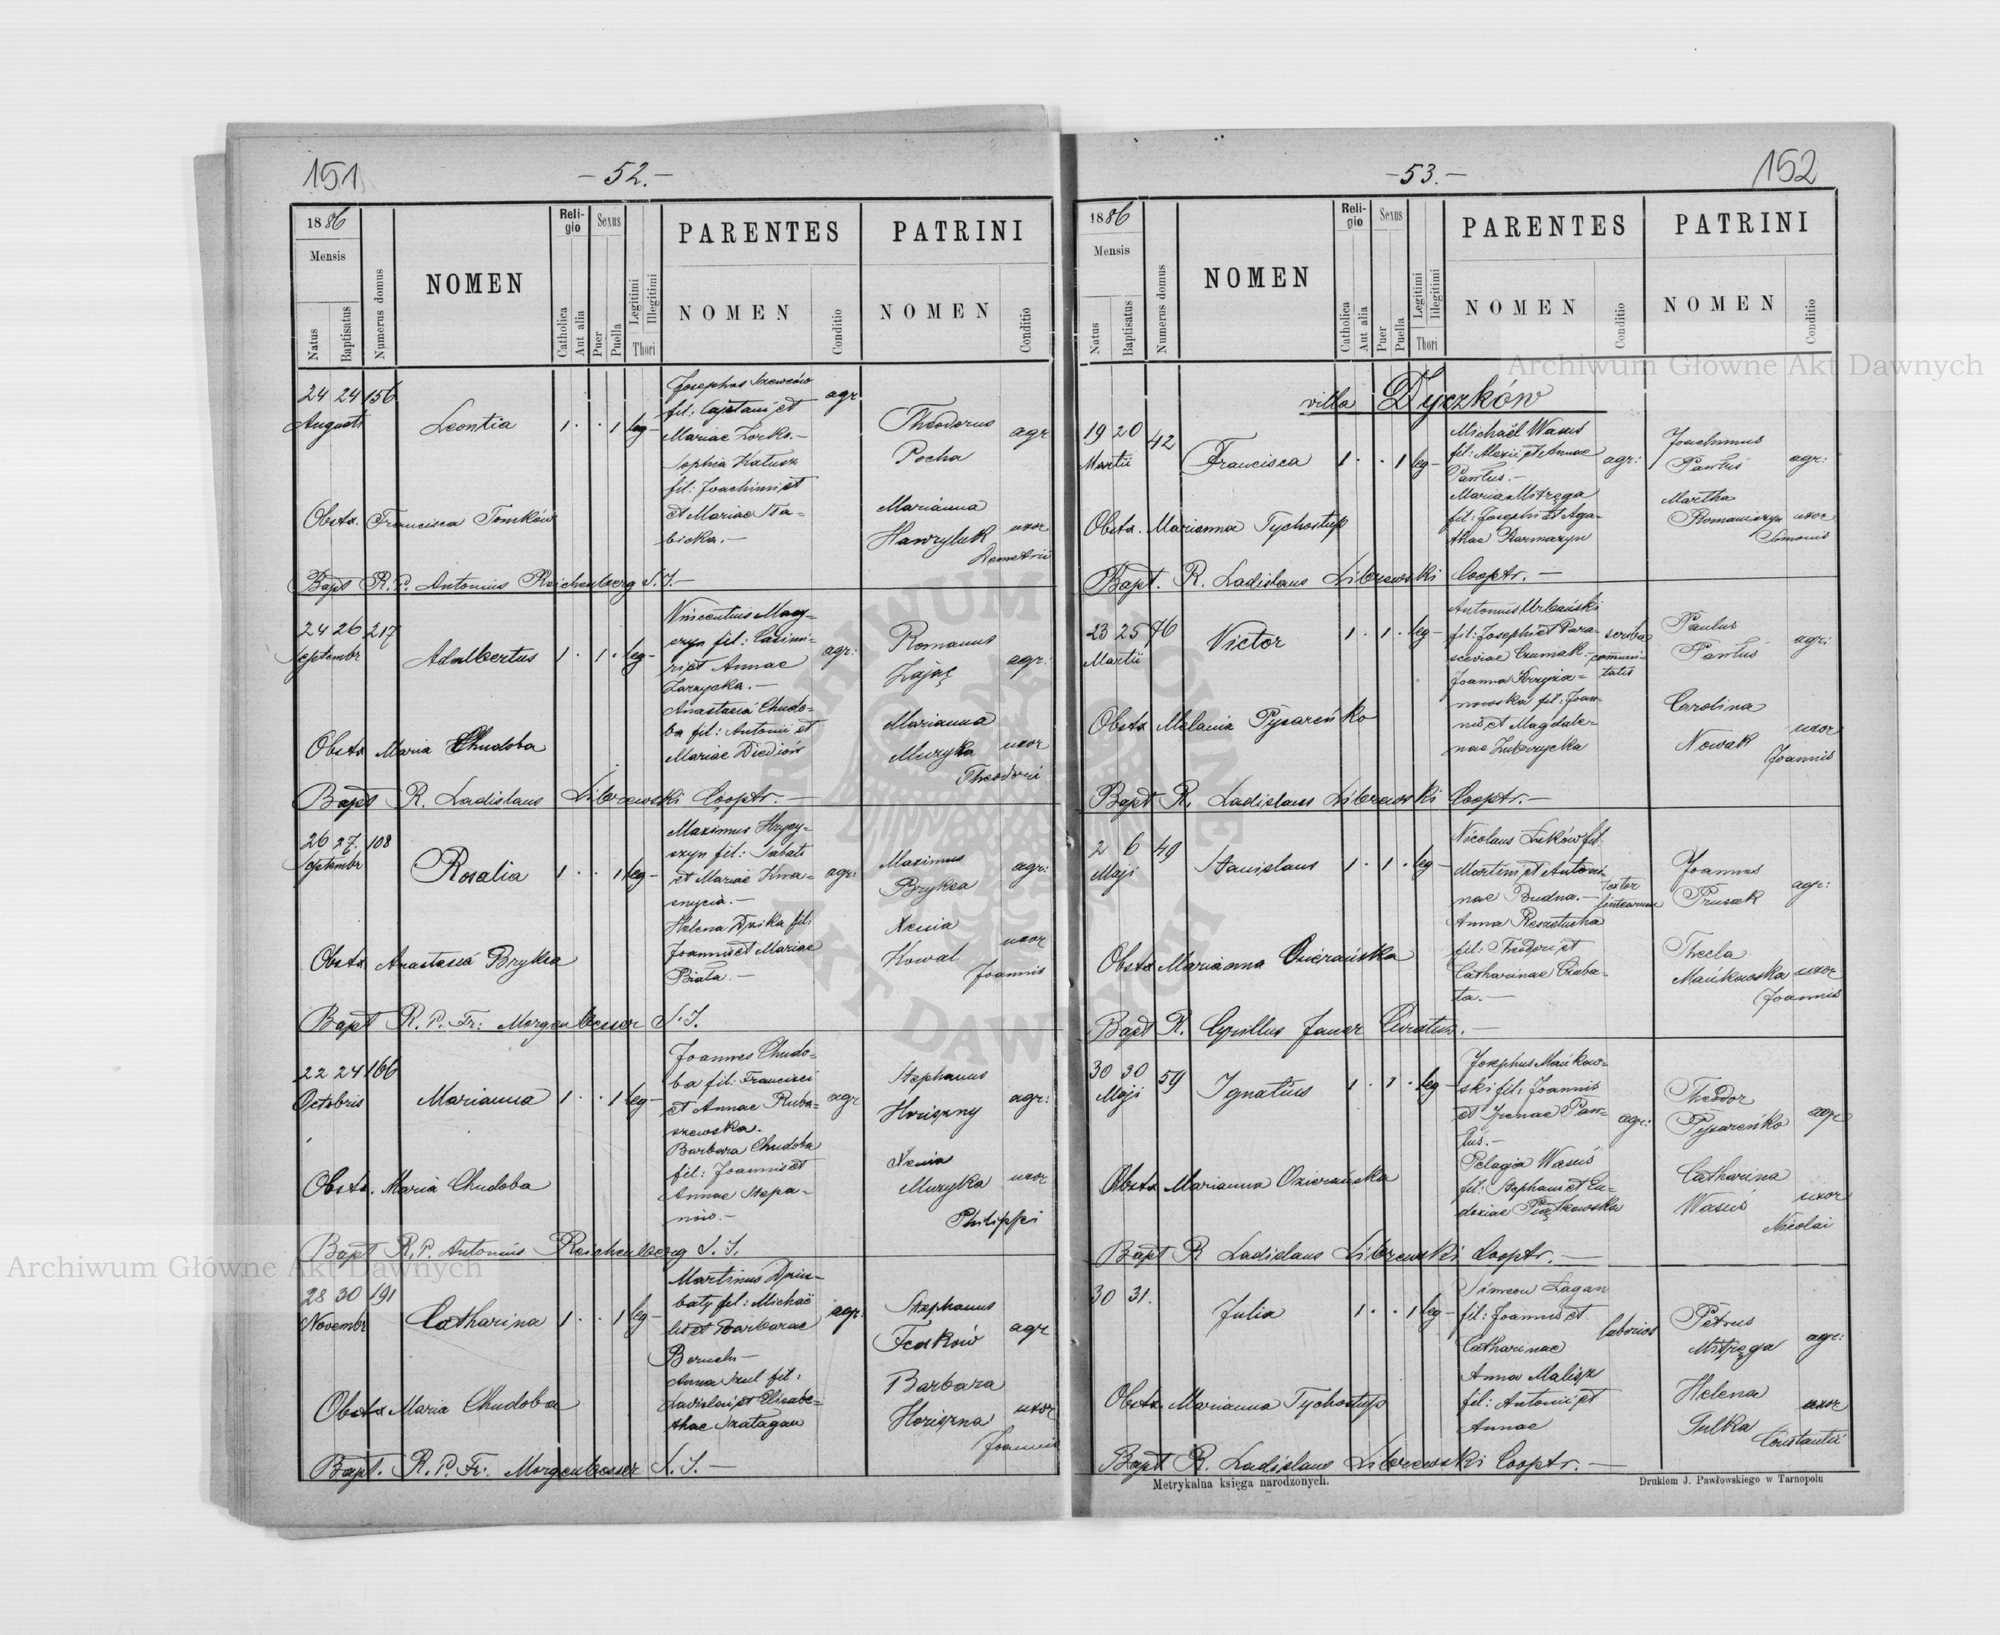 151
- 52. -
1886
Mensis
Natus
Baptisatus
Numerus domus
NOMEN
Religio
Catholica
Aut alia
Sexus
Puer
Puella
Legitimi
Illegitimi
Thori
PARENTES
NOMEN
Conditio
PATRINI
NOMEN
Conditio
24 24 156
Augusti
Leontia
1 . . 1 leg-
Josephus Szewców
fil: Cajetani et
Mariae Zorko. -
Sophia Katusz
fil: Joachimi et
et Mariae
bicka. -
agr
Theodorus
Pocha
agr
Marianna
Hawryluk uxor
Demetrii
Obstx. Francisca Tomków
Bapt R. P. Antonius Reichenberg S. J. -
24 26 217
Septembr
Adalbertus
1 . 1 . leg-
Vincentius Mag-
ryn fil: Casimi-
ri et Annae
Zarzycka. -
Anastasia Chudo-
ba fil: Antonii et
Mariae Diediów
agr:
Romanus
Zając
agr:
Marianna
Muzyka uxor
Theodori
Obstx Maria Chudoba
Bapt R. Ladislaus Librewski Cooptr. -
26 27. 108
Septembr
Rosalia
1 . . 1 leg-
Maximus Hrycy-
szyn fil: Sabati
et Mariae Kwa-
snycia. -
Helena Dzika fil:
Joannis et Mariae
Biała. -
agr:
Maximus
Bryksa
agr:
Xenia
Kowal uxor
Joannis
Obstx Anastasia Bryksa
Bapt R. P. Fr: Morgenbesser S. J.
22 24 166
Octobris
Marianna
1 . . 1 leg-
Joannes Chudo-
ba fil: Francisci
et Annae Ruba-
szewska.
Barbara Chudoba
fil: Joannis et
Annae Stepa-
nów. -
agr
Stephanus
Horiszny
agr:
Xenia
Muzyka uxor
Philippi
Obstx. Maria Chudoba
Bapt R. P. Antonius Reichenberg S. J.
28 30 191
Novembr
Catharina
1 . . 1 leg-
Martinus Dziu-
baty fil: Michaë
lis et Barbarae
Boruch -
Anna Szul fil:
Ladislai et Elisabe-
thae Szatagan
agr:
Stephanus
Fedków
agr
Barbara
Horiszna uxor
Joannis
Obstx Maria Chudoba
Bapt. R. P. Fr: Morgenbesser S. J. -
- 53. -
152
1886
Mensis
Natus
Baptisatus
Numerus domus
NOMEN
Religio
Catholica
Aut alia
Sexus
Puer
Puella
Legitimi
Illegitimi
Thori
PARENTES
NOMEN
Conditio
PATRINI
NOMEN
Conditio
villa Dyczków
19 20 42
Martii
Francisca
1 . . 1 leg-
Michaël Wasuś
fil: Alexii et Annae
Pawluś. -
Maria Mitręga
fil: Josephi et Aga-
thae Karmazyn
agr:
Joachimus
Pawluś
agr:
Martha
Romaniszyn uxor
Simonis
Obstx. Marianna Tychostup
Bapt. R. Ladislaus Librewski Cooptr. -
23 25 76
Martii
Victor
1 . 1 . leg-
Antonius Urbański
fil: Josephi et Para-
sceviae Czumak. -
Joanna Krzyża-
nowska fil: Joan-
nis et Magdale-
nae Zubrzycka
scriba
communi-
tatis
Paulus
Pawluś
agr:
Carolina
Nowak uxor
Joannis
Obstx Melania Pysareńko
Bapt R. Ladislaus Librewski Cooptr. -
2 6 49
Maji
Stanislaus
1 . 1 . leg-
Nicolaus Łuków fil:
Martini et Antoni-
nae Budna. -
Anna Reszetucha
fil: Theodori et
Catharinae Czuba-
ta. -
textor
linteamin
Joannes
Prusak
agr:
Thecla
Mańkowska uxor
Joannis
Obstx Marianna Ozierańska
Bapt R. Cyrillus Jauer Curatus. -
30 30 59
Maji
Ignatius
1 . 1 . leg-
Josephus Mańkow-
ski fil: Joannis
et Irenae Paw-
luś. -
Pelagia Wasuś
fil: Stephani et Eu-
doxiae Piątkowska
agr:
Theodor
Pysareńko
agr
Catharina
Wasuś uxor
Nicolai
Obstx Marianna Ozierańska
Bapt R Ladislaus Librewski Cooptr. -
30 31.
Julia
1 . . 1 leg-
Simeon Łagan
fil: Joannis et
Catharinae
Anna Malisz
fil: Antonii et
Annae
laborios
Petrus
Mitręga
agr:
Helena
Hulka uxor
Constantii
Obstx. Marianna Tychostup
Bapt R. Ladislaus Librewski Cooptr. -
Metrykalna księga narodzonych.
Drukiem J. Pawłowskiego w Tarnopolu
Archiwum Główne Akt Dawnych
Archiwum Główne Akt Dawnych
ARCHIWUM GŁÓWNE AKT DAWNYCH